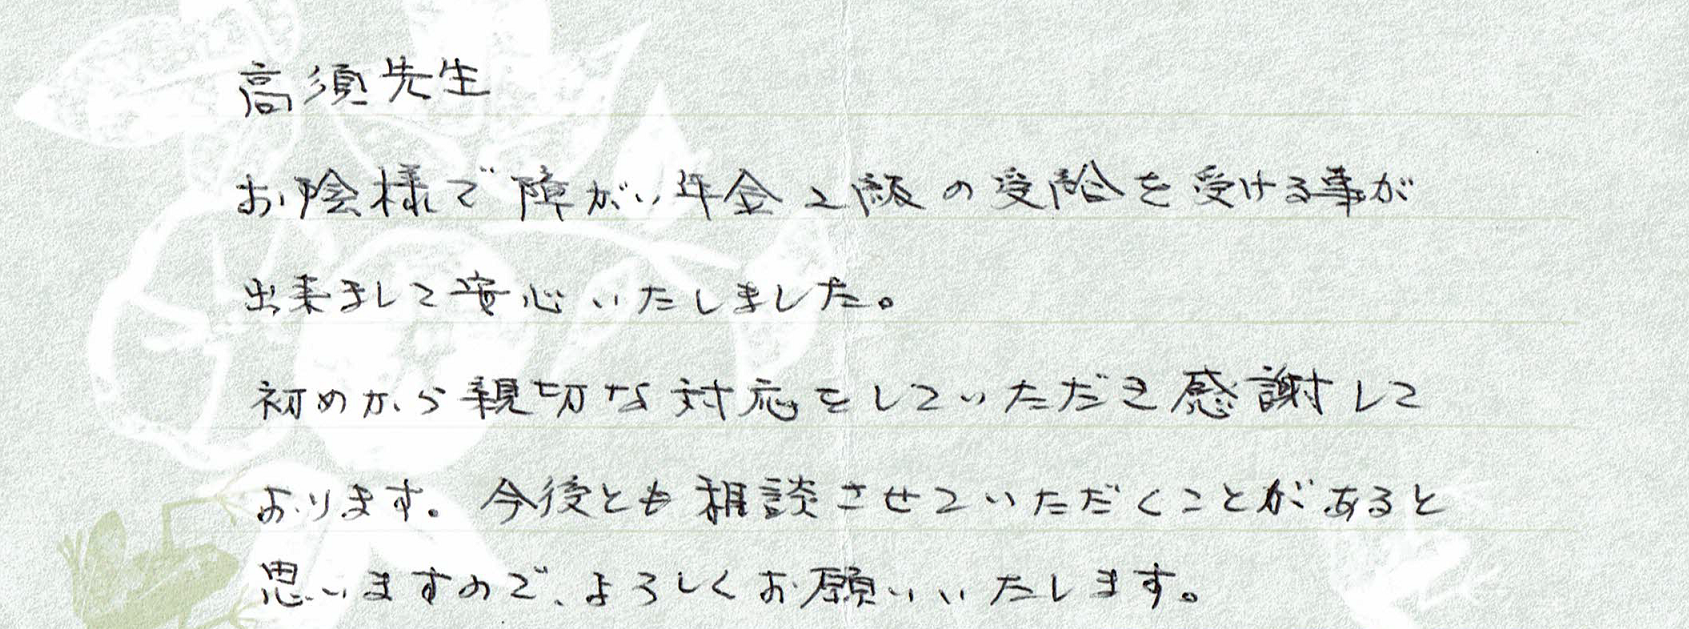 高須先生
お陰様で障がい年金2級の受給を受ける事が
出来まして安心いたしました。
初めから親切な対応をしていただき感謝して
おります。今後とも相談させていただくことがあると
思いますので、よろしくお願いいたします。